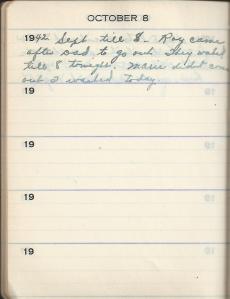 OCTOBER 8
1942 Slept till 8 - Roy came
after Dad to go out. They worked
till 8 tonight. Marie didn't come
out I washed today.
19
19
19
19